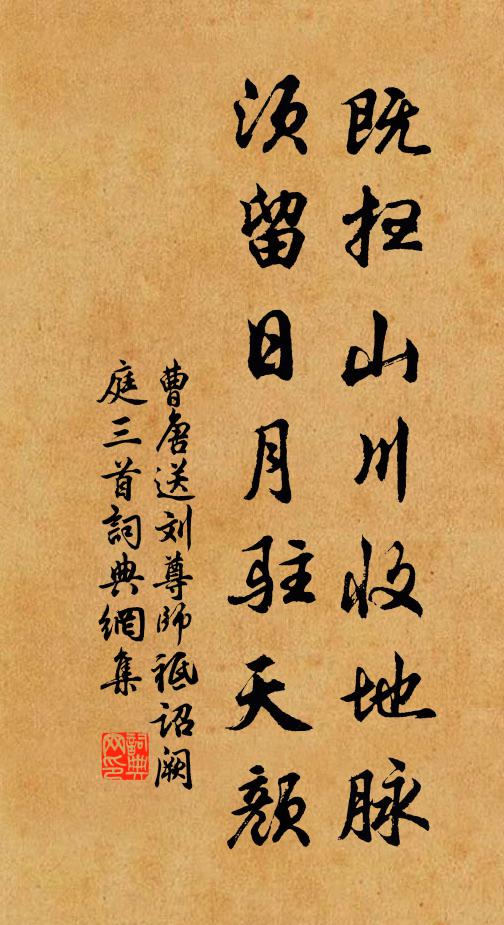 既扫山川收地脉
须留日月驻天颜
曹唐送刘尊師祗詔阙
庭三首詞典網集
詞典网印